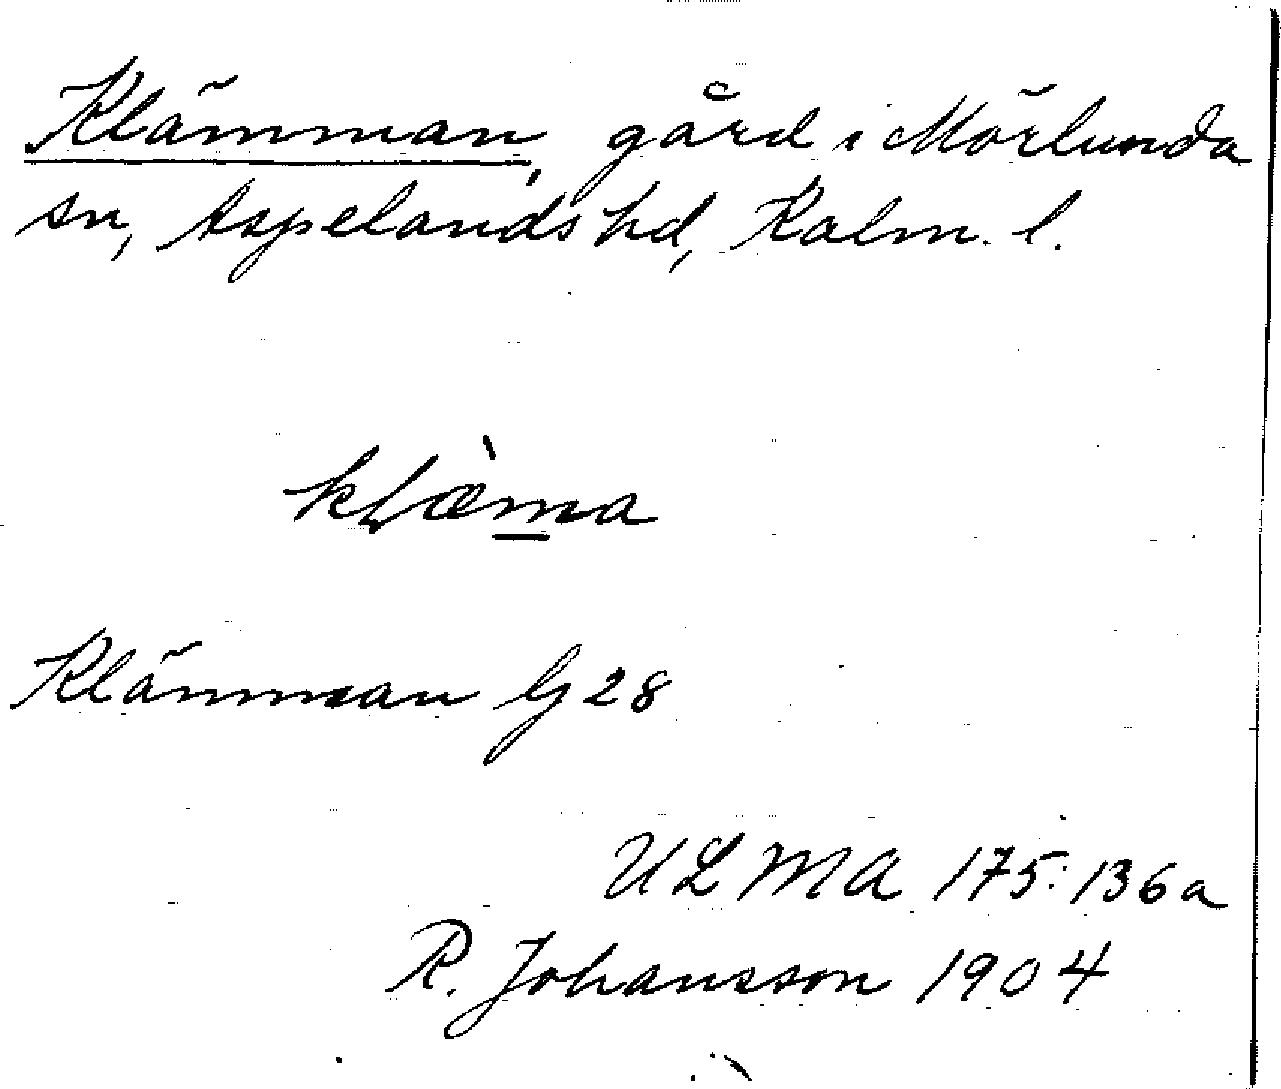 Klämman, gård i Mörlunda
sn, Aspelands hd, Kalm. l.
klæ̀m̲a
Klämman G 28
ULMA 175:136a
R. Johansson 1904